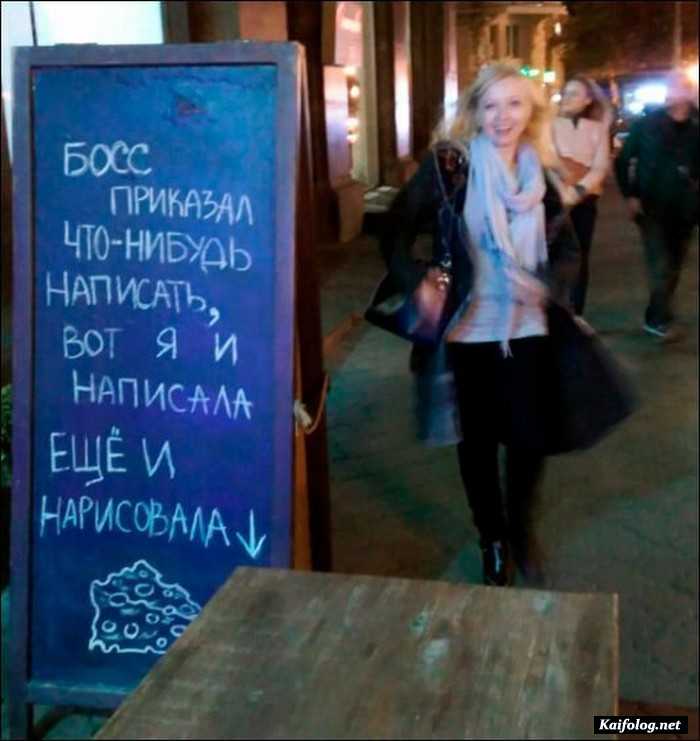 БОСС
ПРИКАЗАЛ
ЧТО-НИБУДЬ
НАПИСАТЬ,
ВОТ Я И
НАПИСАЛА
ЕЩЁ И
НАРИСОВАЛА↓
Kaifolog.net